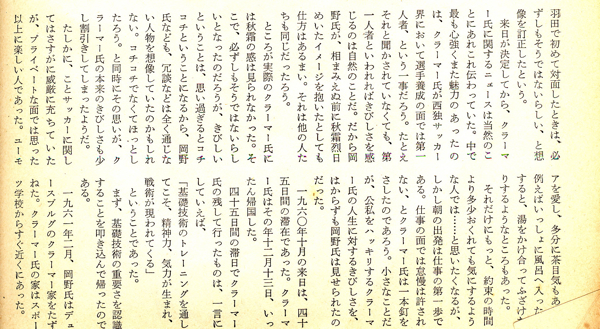 羽田で初めて対面したときは、必
ずしもそうではないらしい、と想
像を訂正したという。
来日が決定してから、クラーマ
ー氏に関するニュースは当然のこ
とにあれこれ伝わっていた。中で
最も心強くまた魅力のあったの
は、クラーマー氏が西独サッカー
界において選手養成の面では第一
人者、という一事だろう。たとえ
それと聞かされていなくても、第
一人者といわれればきびしさを感
じるのは自然のことだ。だから岡
野氏が、相まみえぬ前に秋霜烈日
めいたイメージを抱いたとしても
仕方はあるまい。それは他の人た
ちも同じだったろう。
ところが実際のクラーマー氏に
は秋霜の感は見られなかった。そ
こで、必ずしもそうではないらし
いとなったのだろうが、きびしい
ということは、思い過ぎるとコチ
コチということになるから、岡野
氏なども、冗談などは全く通じな
い人物を想像していたのかもしれ
ない。コチコチでなくてほっとし
たろう。と同時にその思いが、ク
ラーマー氏の本来のきびしさも少
し割引きしてしまったようだ。
たしかに、ことサッカーに関し
てはさすがに威厳に充ちていた
が、プライベートな面では思った
以上に楽しい人であった。ユーモ
アを愛し、多分に茶目気もあ
例えばいっしょに風呂へ入った
すると、湯をかけ合ってふざけ
りするようなところもあった。
それだけにもっと、約束の時間
より多少おくれても気にするよう
な人では……と思いたくなるが、
しかし朝の出発は仕事の第一歩で
ある。仕事の面では怠慢は許され
ない、とクラーマー氏は一本釘を
さしたのであろう。小さなことだ
が、公私をハッキリするクラーマ
ー氏の人生に対するきびしさを、
はからずも岡野氏は見せられたの
だった。
一九六〇年十月の来日は、四十
五日間の滞在であった。クラーマ
ー氏はその年十二月十三日、いっ
たん帰国した。
四十五日間の滞日でクラーマー
氏の残して行ったものは、一言に
していえば、
「基礎技術のトレーニングを通し
てこそ、精神力、気力が生まれ、
戦術が現われてくる」
ということであった。
まず、基礎技術の重要さを認識
することを叩き込んで帰ったので
ある。
一九六一年二月、岡野氏はデュ
ースブルグのクラーマー家をたず
ねた。クラーマー氏の家はスポー
ツ学校からすぐ近くにあった。